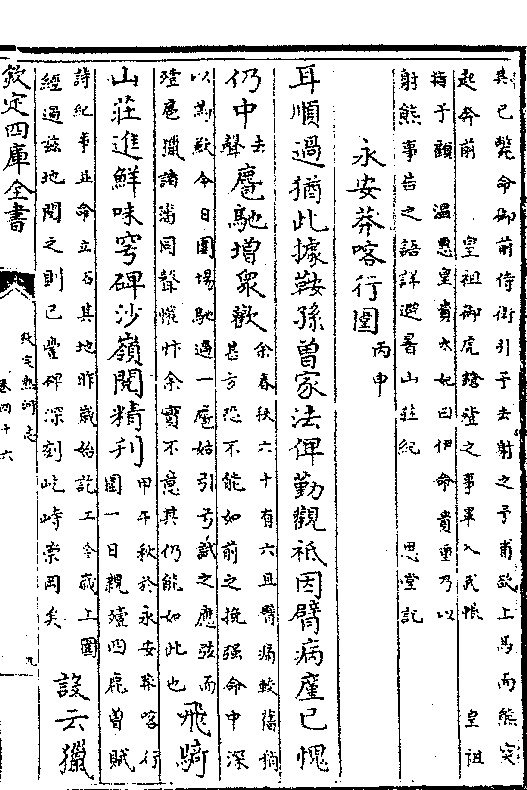 其已斃命御前侍衛引予去射之予甫欲上馬而熊突
起奔前　皇祖御虎鎗殪之事畢入武帳　皇祖
指予顧　溫惠皇貴太妃曰伊命貴重乃以
射熊事告之語詳避暑山莊紀　恩堂記
永安莽喀行圍丙申
耳順過猶此據鞍孫曾家法俾勤觀祗因臂病產已愧
仍中去聲麅馳增衆歡余春秋六十有六且臂痛較舊稍
甚方恐不能如前之挽强命中深
以爲歉今日圍場馳過一麅姑引弓試之應弦而
殪扈獵諸藩同聲懽忭余實不意其仍能如此也飛騎
山莊進鮮味穹碑沙嶺閱精刋甲午秋於永安莽喀行
圍一日親殪四鹿曾賦
詩紀事並命立石其地昨歲始訖工今歲上圍
經過兹地閱之則已豐碑深刻屹峙崇岡矣設云獵
欽定四庫全書
欽定熱河志
卷四十六
九